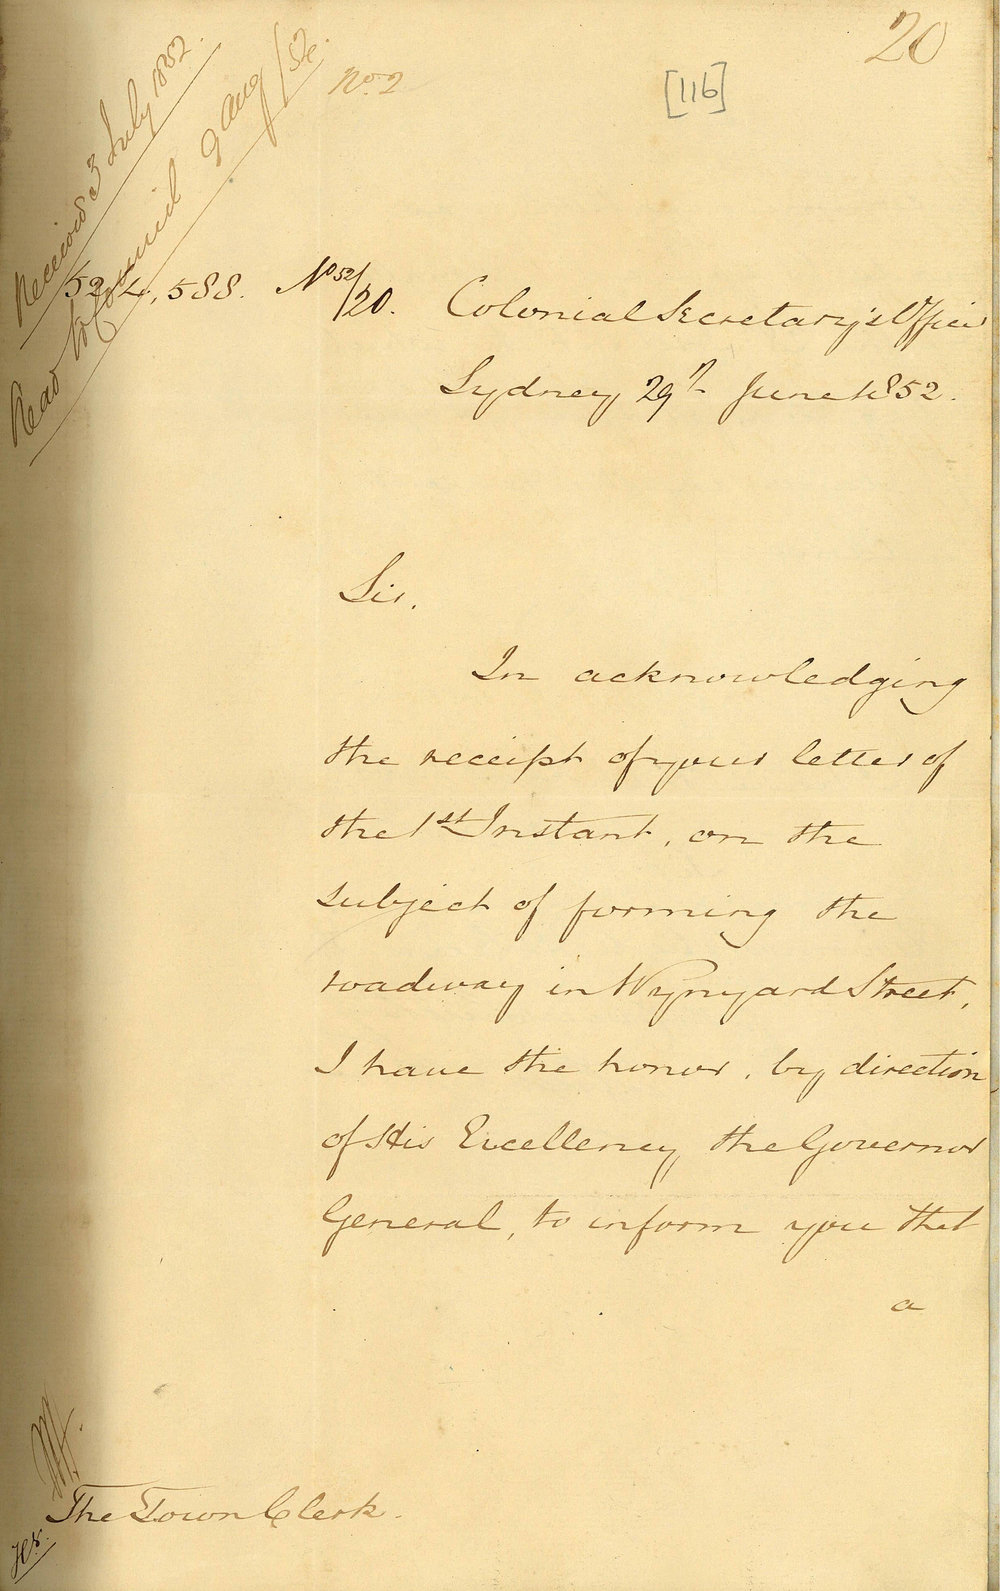 20
No. 2
[116]
Received 3 July 1852.
Read to Council 9 Aug/52.
52/4,588. No 52/20. Colonial Secretary's Office
Sydney, 29th June 1852.
Sir.
In acknowledging
the receipt of your letter of
the 1st Instant, on the
subject of forming the
roadway in Wynyard Street,
I have the honor, by direction
of His Excellency, the Governor
General, to inform you that
a
The Town Clerk.